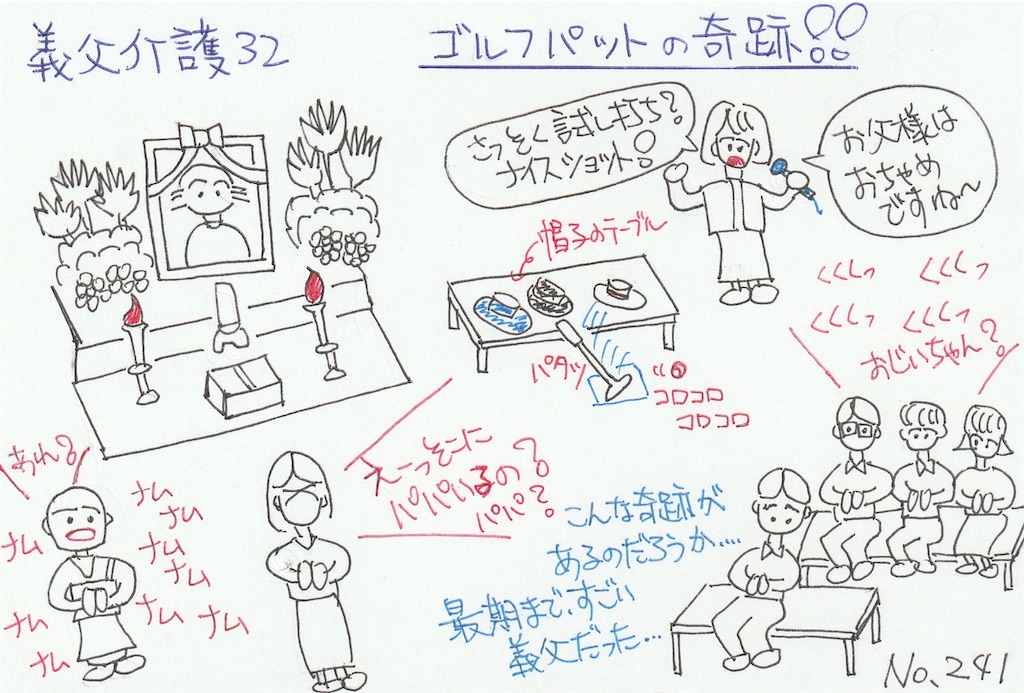 義父介護32
ゴルフパットの奇跡!!
さっそく試し打ち?
ナイスショット!
お父様は
おちゃめ
ですね〜
帽子のテーブル
パタッ
コロコロ
コロコロ
くくくっ
くくくっ
くくくっ
くくくっ
おじいちゃん?
あれ?
ナム
ナム
ナム
ナム
ナム
ナム
ナム
ナム
ナム
えーっそこに
パパいるの?
パパ?
こんな奇跡が
あるのだろうか....
最期まで、すごい
義父だった...
No.241